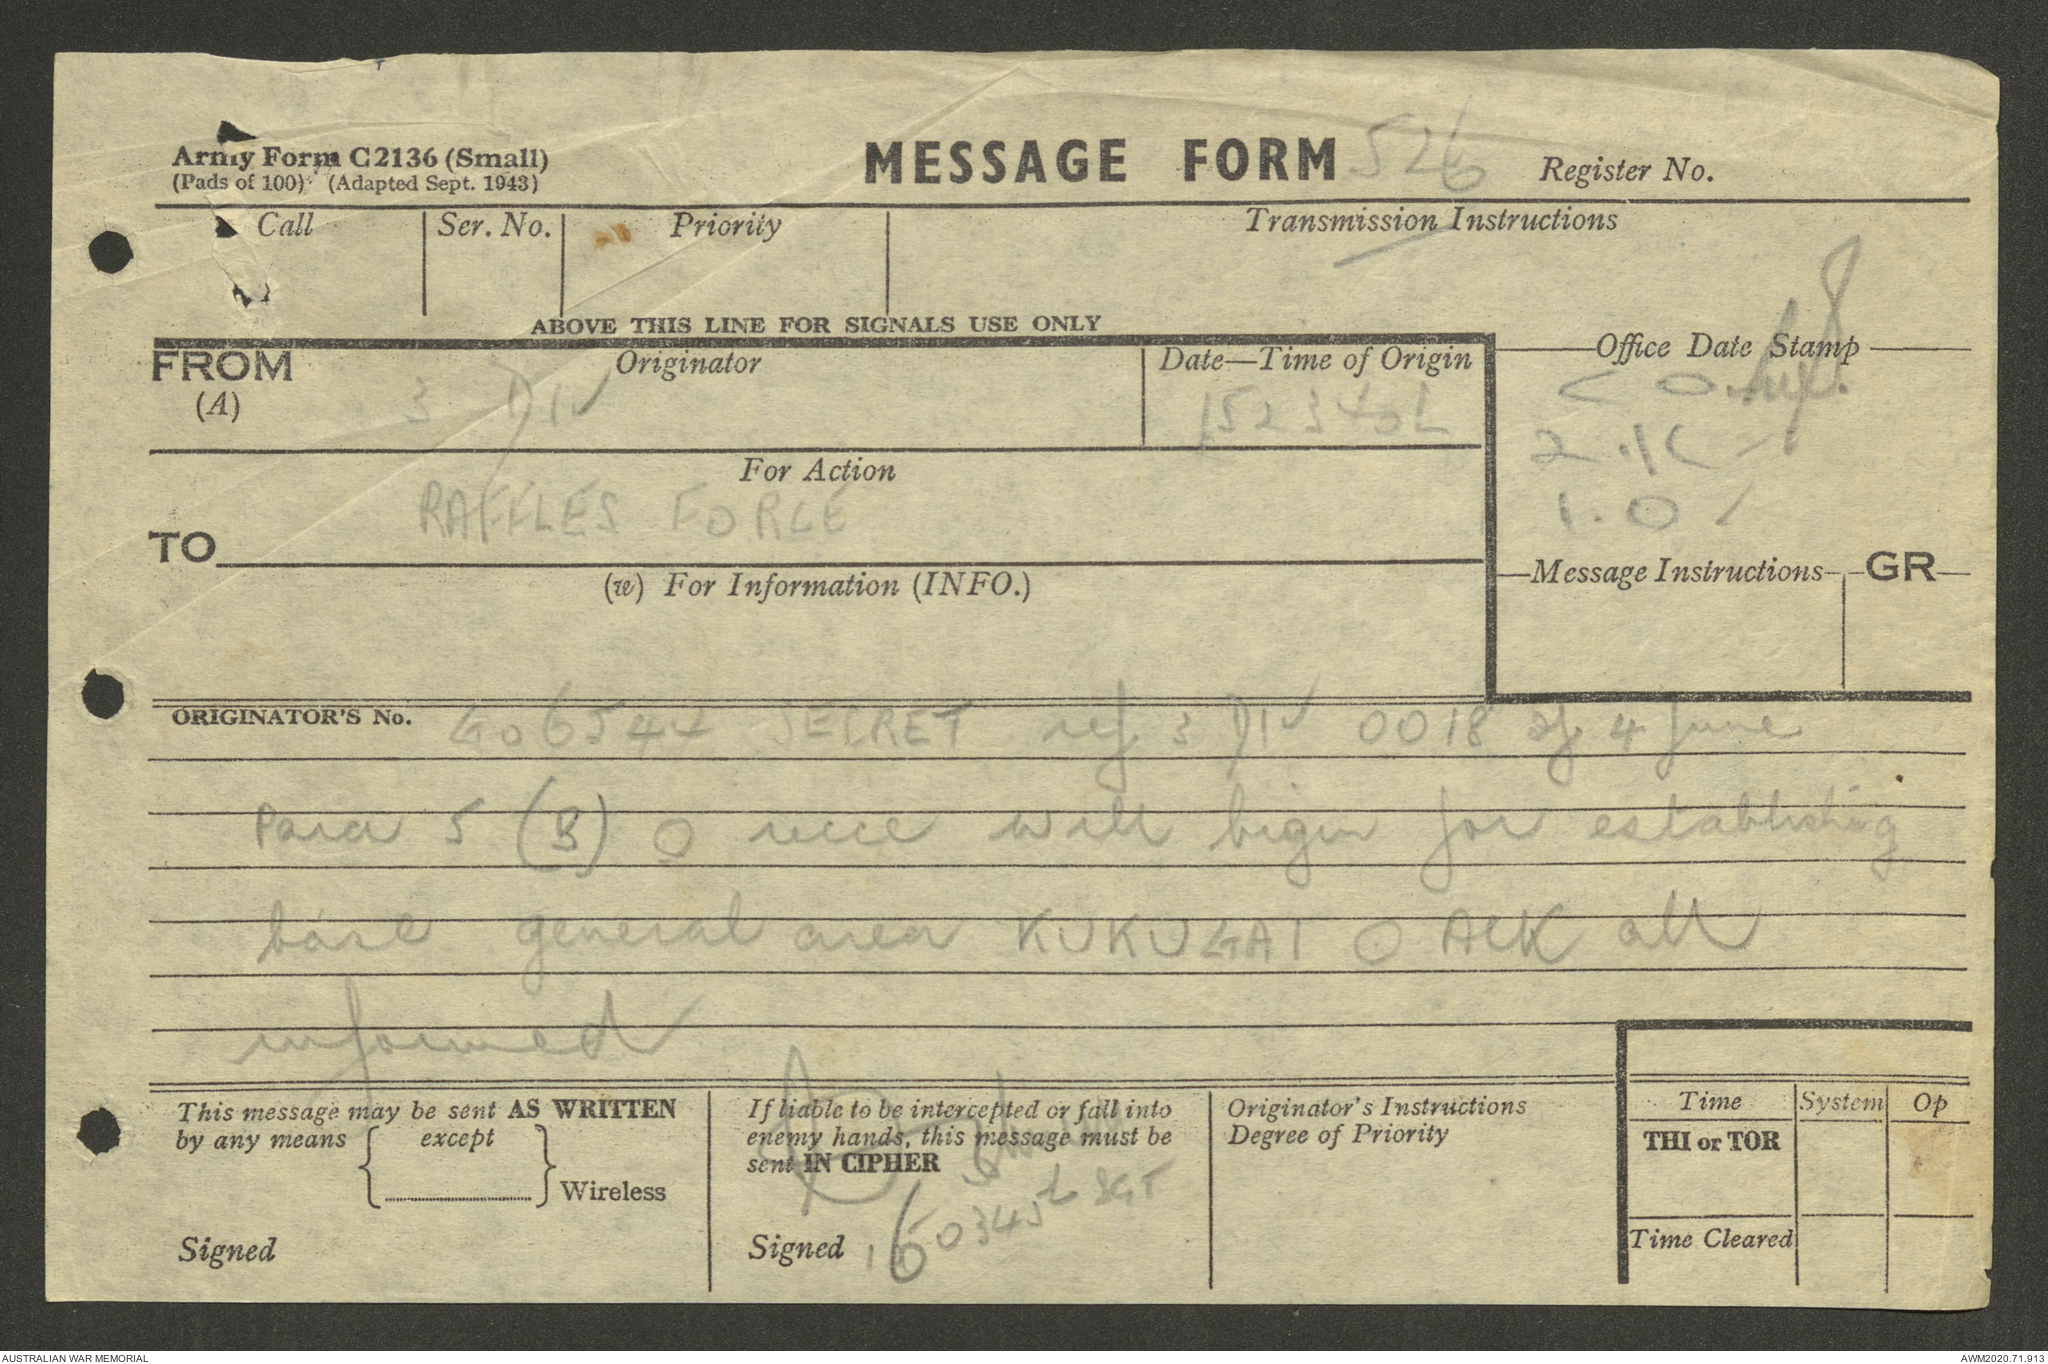 Army Form C2136 (Small)
(Pads of 100) (Adapted Sept. 1943)
MESSAGE FORM 526 Register No.
Call Ser. No. Priority Transmission Instructions
ABOVE THIS LINE FOR SIGNALS USE ONLY
FROM Originator Date—Time of Origin Office Date Stamp
(A) 3 DIV 152340L
For Action
RAFFLES FORCE
I.O
TO
(w) For Information (INFO.) Message Instructions GR
ORIGINATOR'S No. G06544 SECRET ref 3 DIV 0018 of 4 June
Para 5 (B) O recce will begin for establishing
base general area KUKUGAI O ACK all
informed
This message may be sent AS WRITTEN
by any means except
Wireless
Signed
If liable to be intercepted or fall into
enemy hands, this message must be
sent IN CIPHER
SGT
Signed 160345L
Originator's Instructions
Degree of Priority
Time System Op
THI or TOR
Time Cleared
AUSTRALIAN WAR MEMORIAL AWM2020.71.913